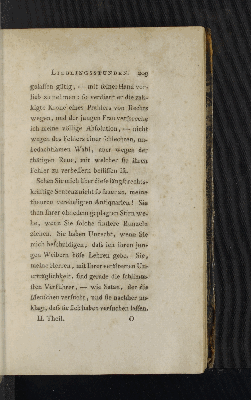 LIEBLINGSSTUNDEN. 209
gelassen gütig, — mit seiner Hand vor-
lieb zu nehmen: so verdient er die zak-
kigte Krone eines Prahlers von Rechts
wegen, und der jungen Frau
ich meine völlige Absolution, — nicht
wegen des Fehlers einer schlechten, un-
bedachtsamen Wahl, aber wegen der
thätigen Reue, mit welcher sie ihren
Fehler zu verbessern beflissen ist.
Sehen Sie mich über diese längst rechts-
kräftige Sentenz nicht so sauer an, meine
theuren, ehrwürdigen Antiquarien! Sie
thun Ihrer ohnedem geplagten Stirn we-
he, wenn Sie solche finstere Runzeln
ziehen. Sie haben Unrecht, wenn Sie
mich beschuldigen, daß ich Ihren jun-
gen Weibern böse Lehren gebe. Sie,
meine Herren, mit Ihrer verliebten Un-
erträglichkeit, sind gerade die schlimm-
sten Verführer, — wie Satan, der die
Menschen versucht, und sie nachher an-
klagt, daß sie sich haben versuchen lassen.
II. Theil. O